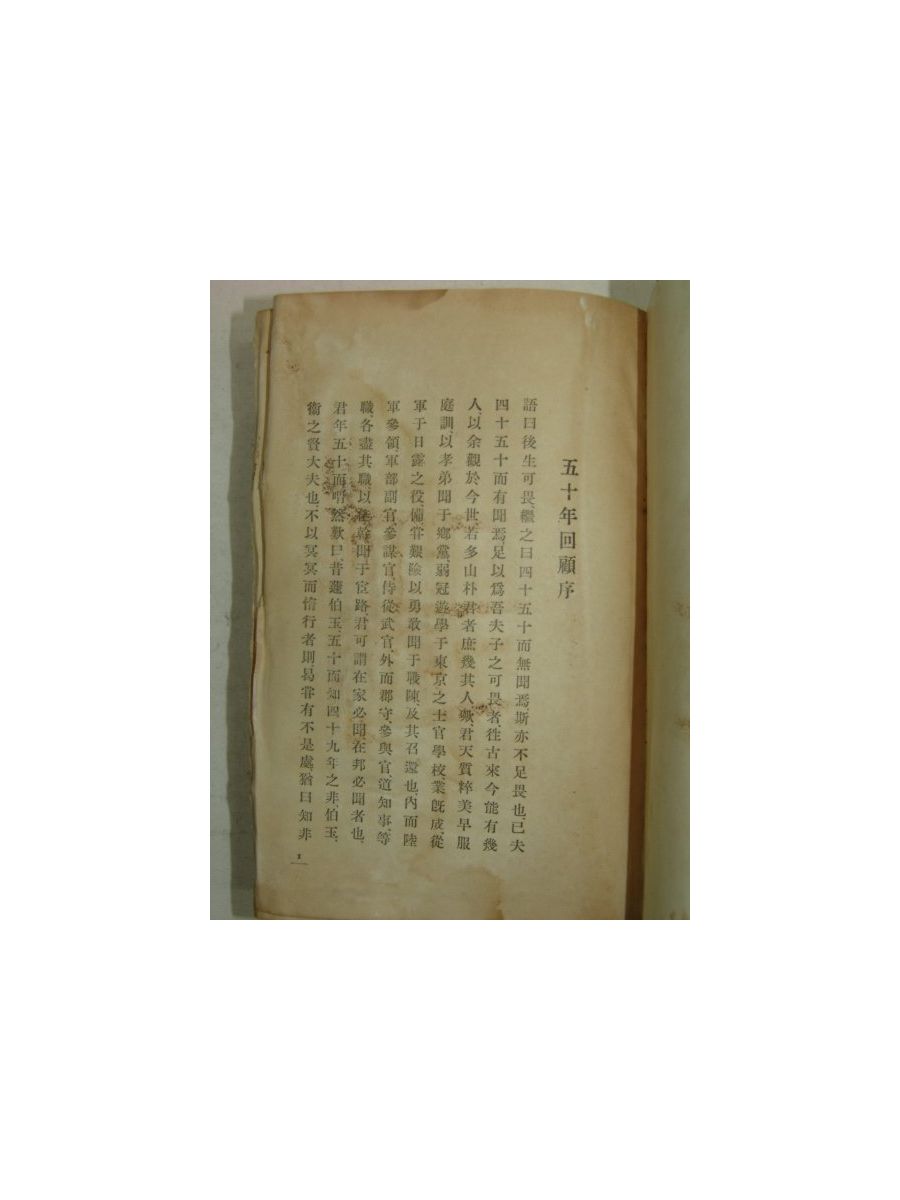 五十年回顧序
語曰後生可畏、繼之曰四十五十而無聞焉、斯亦不足畏也、已夫
四十五十而有聞焉、足以爲吾夫子之可畏者、徃古來今能有幾
人、以余觀於今世若多山朴君者、庶幾其人歟、君天質粹美早服
庭訓、以孝弟聞于鄕黨、弱冠遊學于東京之士官學校、業旣成、從
軍于日露之役、備甞艱險以勇敢聞于戰陳、及其召還也、內而陸
軍參領軍部副官參謀官、侍從武官、外而郡守、參與官道知事、等
職、各盡其職以幹聞于宦路、君可謂在家必聞、在邦必聞者也、
君年五十而喟然歎曰、昔蘧伯玉、五十而知四十九年之非、伯玉、
衛之賢大夫也、不以冥冥而惰行者則、曷甞有不是處、猶曰知非
1